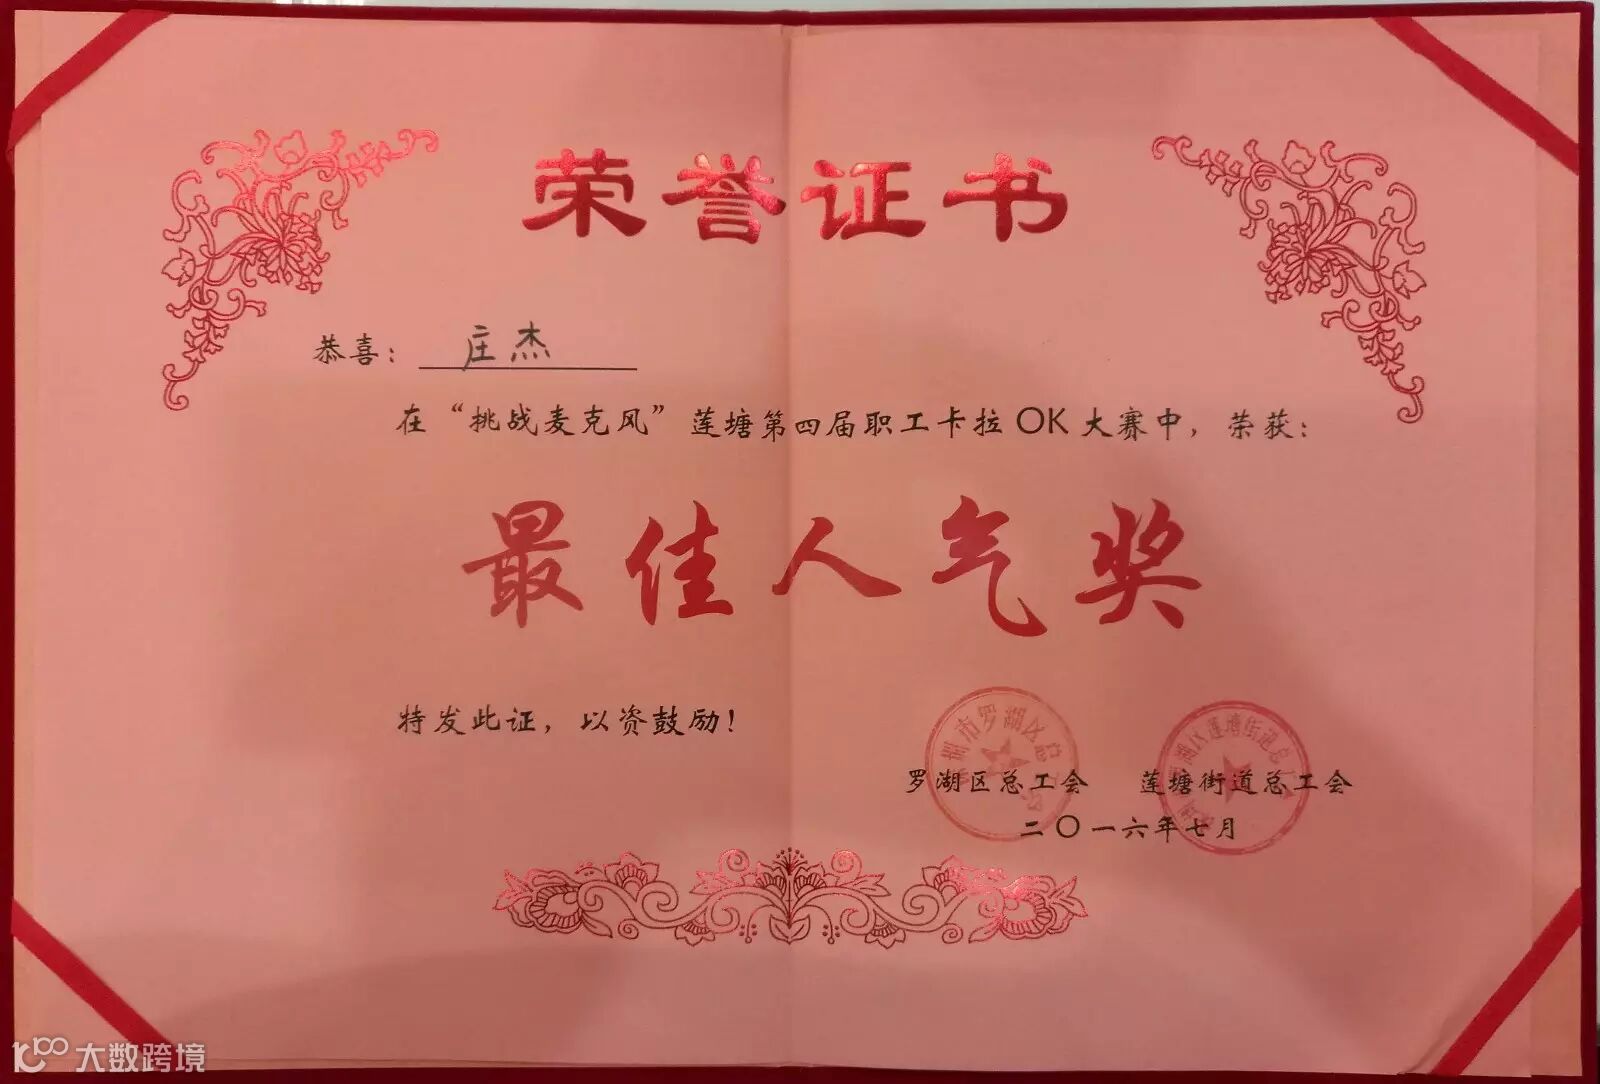 荣誉证书
恭喜：庄杰
在“挑战麦克风”莲塘第四届职工卡拉OK大赛中，荣获：
最佳人气奖
特发此证，以资鼓励！
罗湖区总工会 莲塘街道总工会
二〇一六年七月
大数跨境